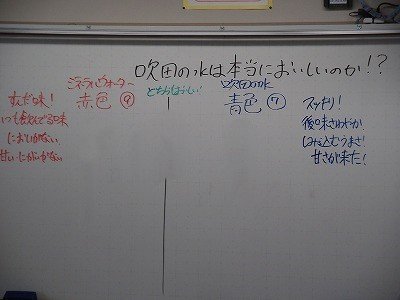 吹田の水は本当においしいのか!?
ミネラルウォーター
赤色 ⑨
どちらがおいしい!
吹田の水
青色 ⑦
すんだ味!
いつも飲んでる味
においがない
甘い・にがいがない
スッキリ!
後味さわやか
しみ込むうまさ!
甘さが来た!